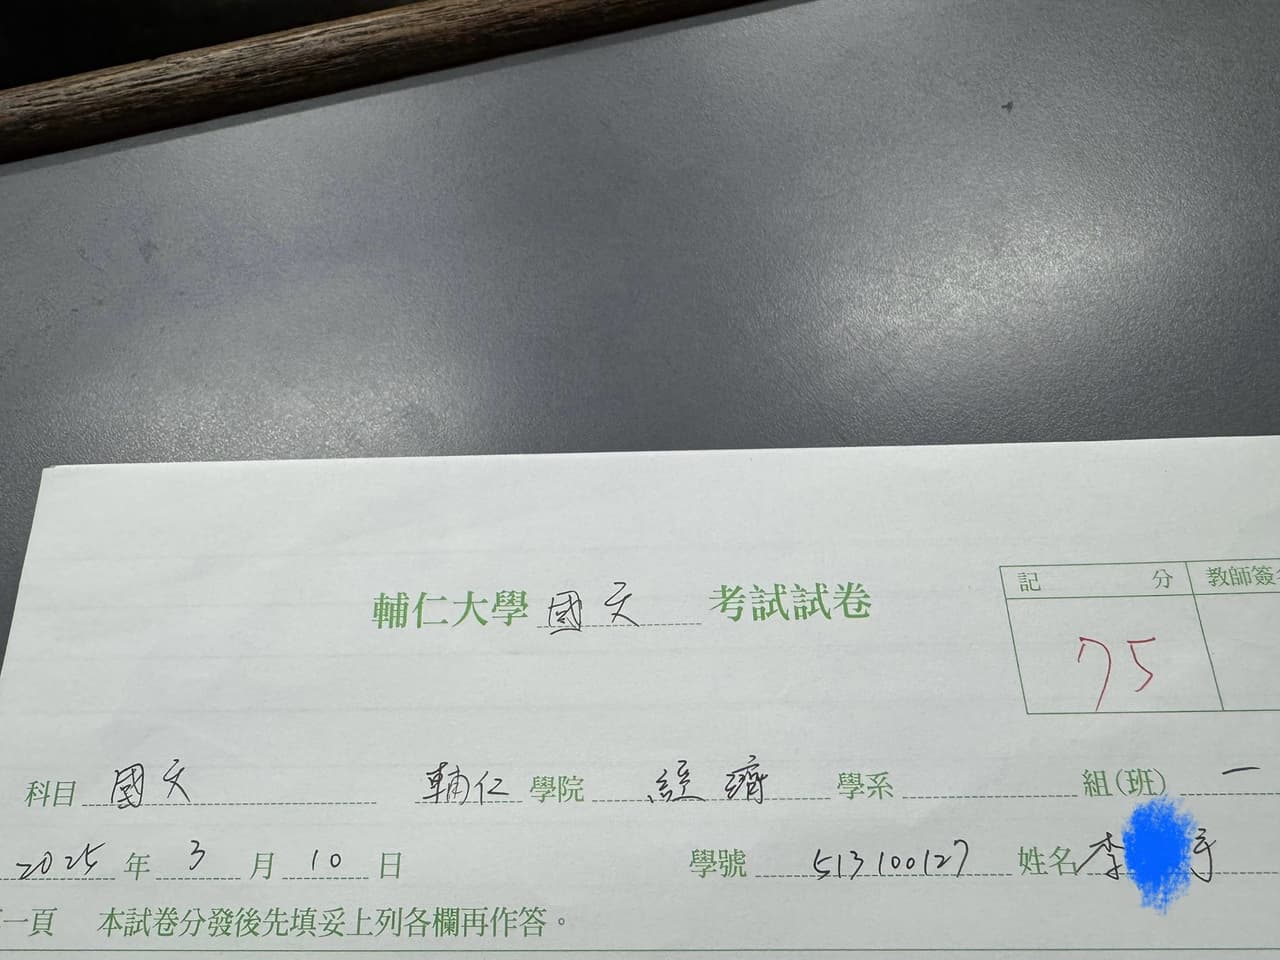 輔仁大學 國文 考試試卷
記分 教師簽名
75
科目 國文 輔仁 學院 經濟 學系 組(班) 一
2025 年 3 月 10 日 學號 513100127 姓名 李 宇
一頁 本試卷分發後先填妥上列各欄再作答。